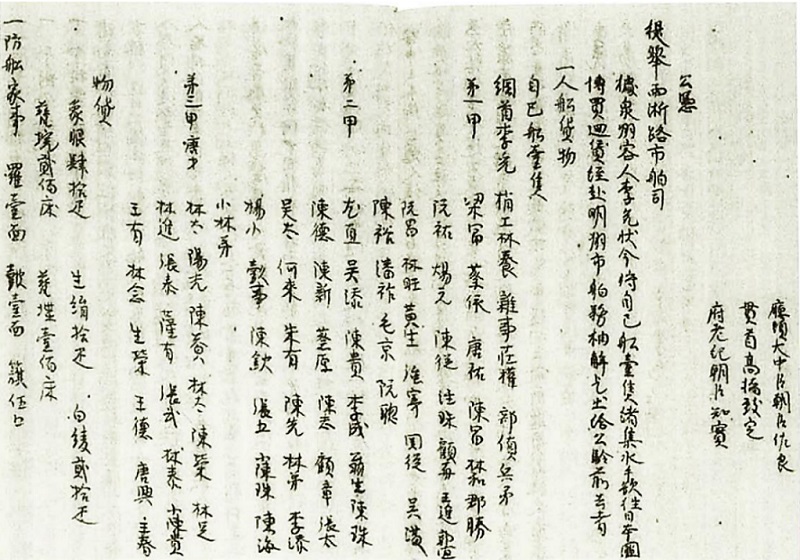 大中臣朝臣佐良
貫首高橋致定
府老紀朝臣知實
公憑
提舉兩浙路市舶司
據泉州客人李充狀今將自己船壹隻請集水手欲往日本國
博買迴貨經赴明州市舶務抽解乞出給公驗前去者
一人船貨物
自己船壹隻
綱首李充 梢工林養 雜事莊權 部領兵弟
第一甲 梁富 蔡依 唐祐 陳富 林和 郡勝
阮祐 煬元 陳從 注珠 顧冉 王進 郭宜
阮昌 林旺 黃生 強宰 關從 吳滿
陳裕 潘祚 毛京 阮聰
第二甲 尤直 吳添 陳貴 李成 翁生 陳珠
陳德 陳新 蔡原 陳志 顧章 張太
吳太 何來 朱有 陳先 林弟 李添
楊小 彭事 陳欽 張五 小陳珠 陳海
小林弟
第三甲 唐才 林太 陽光 陳養 林太 陳榮 林足
林進 張泰 薩有 張武 林泰 小陳貴
王有 林念 生榮 王德 唐興 王春
物貨
象眼肆拾疋 生絹拾疋 白綾貳拾疋
瓷垸貳佰床 瓷堞壹佰床
一防船家事 鑼壹面 鼓壹面 旗伍口